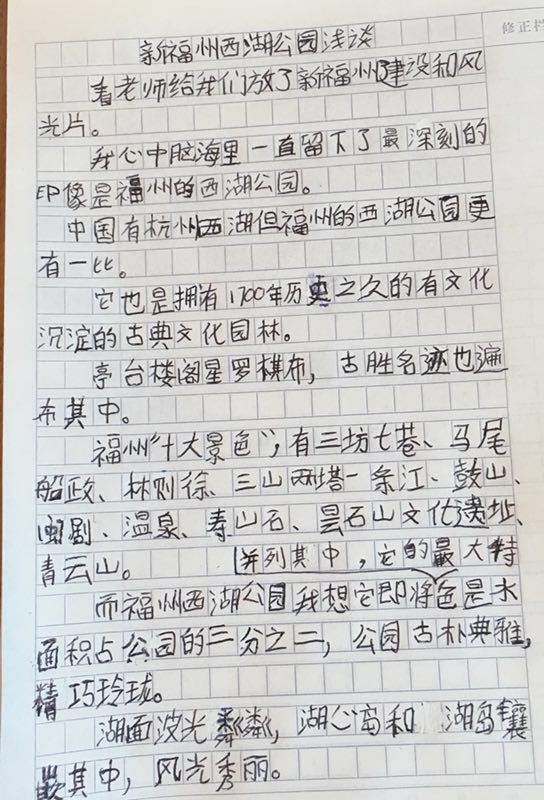 修正栏
新福州西湖公园浅谈
看老师给我们放了新福州建设和风
光片。
我心中脑海里一直留下了最深刻的
印像是福州的西湖公园。
中国有杭州西湖但福州的西湖公园更
有一比。
它也是拥有1700年历史之久的有文化
沉淀的古典文化园林。
亭台楼阁星罗棋布，古胜名迹也遍
布其中。
福州"十大景色"，有三坊七巷、马尾
船政、林则徐、三山两塔一条江、鼓山、
闽剧、温泉、寿山石、昙石山文化遗址、
青云山。
并列其中，它的最大特
而福州西湖公园我想它即将色是水
面积占公园的三分之二，公园古朴典雅，
精巧玲珑。
湖面波光粼粼，湖心岛和湖岛镶
嵌其中，风光秀丽。